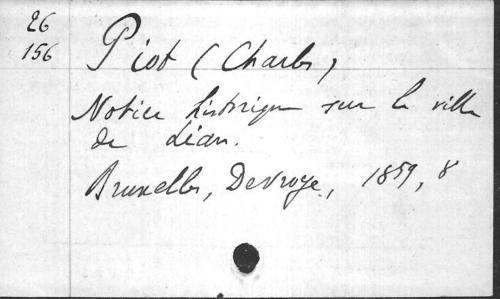 26
156
Piot (Charles)
Notice historique sur la ville
de Léau.
Bruxelles, Devroye, 1859, 8